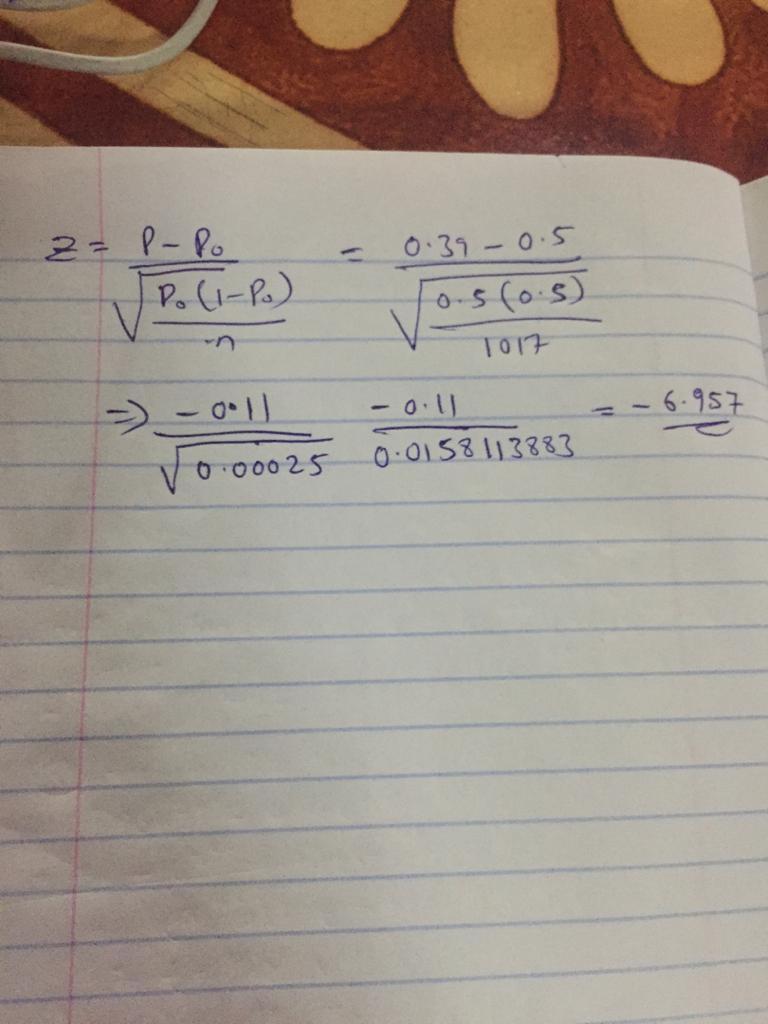 z = P - P₀ / √(P₀(1-P₀) / n) = 0.39 - 0.5 / √(0.5(0.5) / 1017)
⇒ -0.11 / √0.00025 -0.11 / 0.0158113883 = -6.957